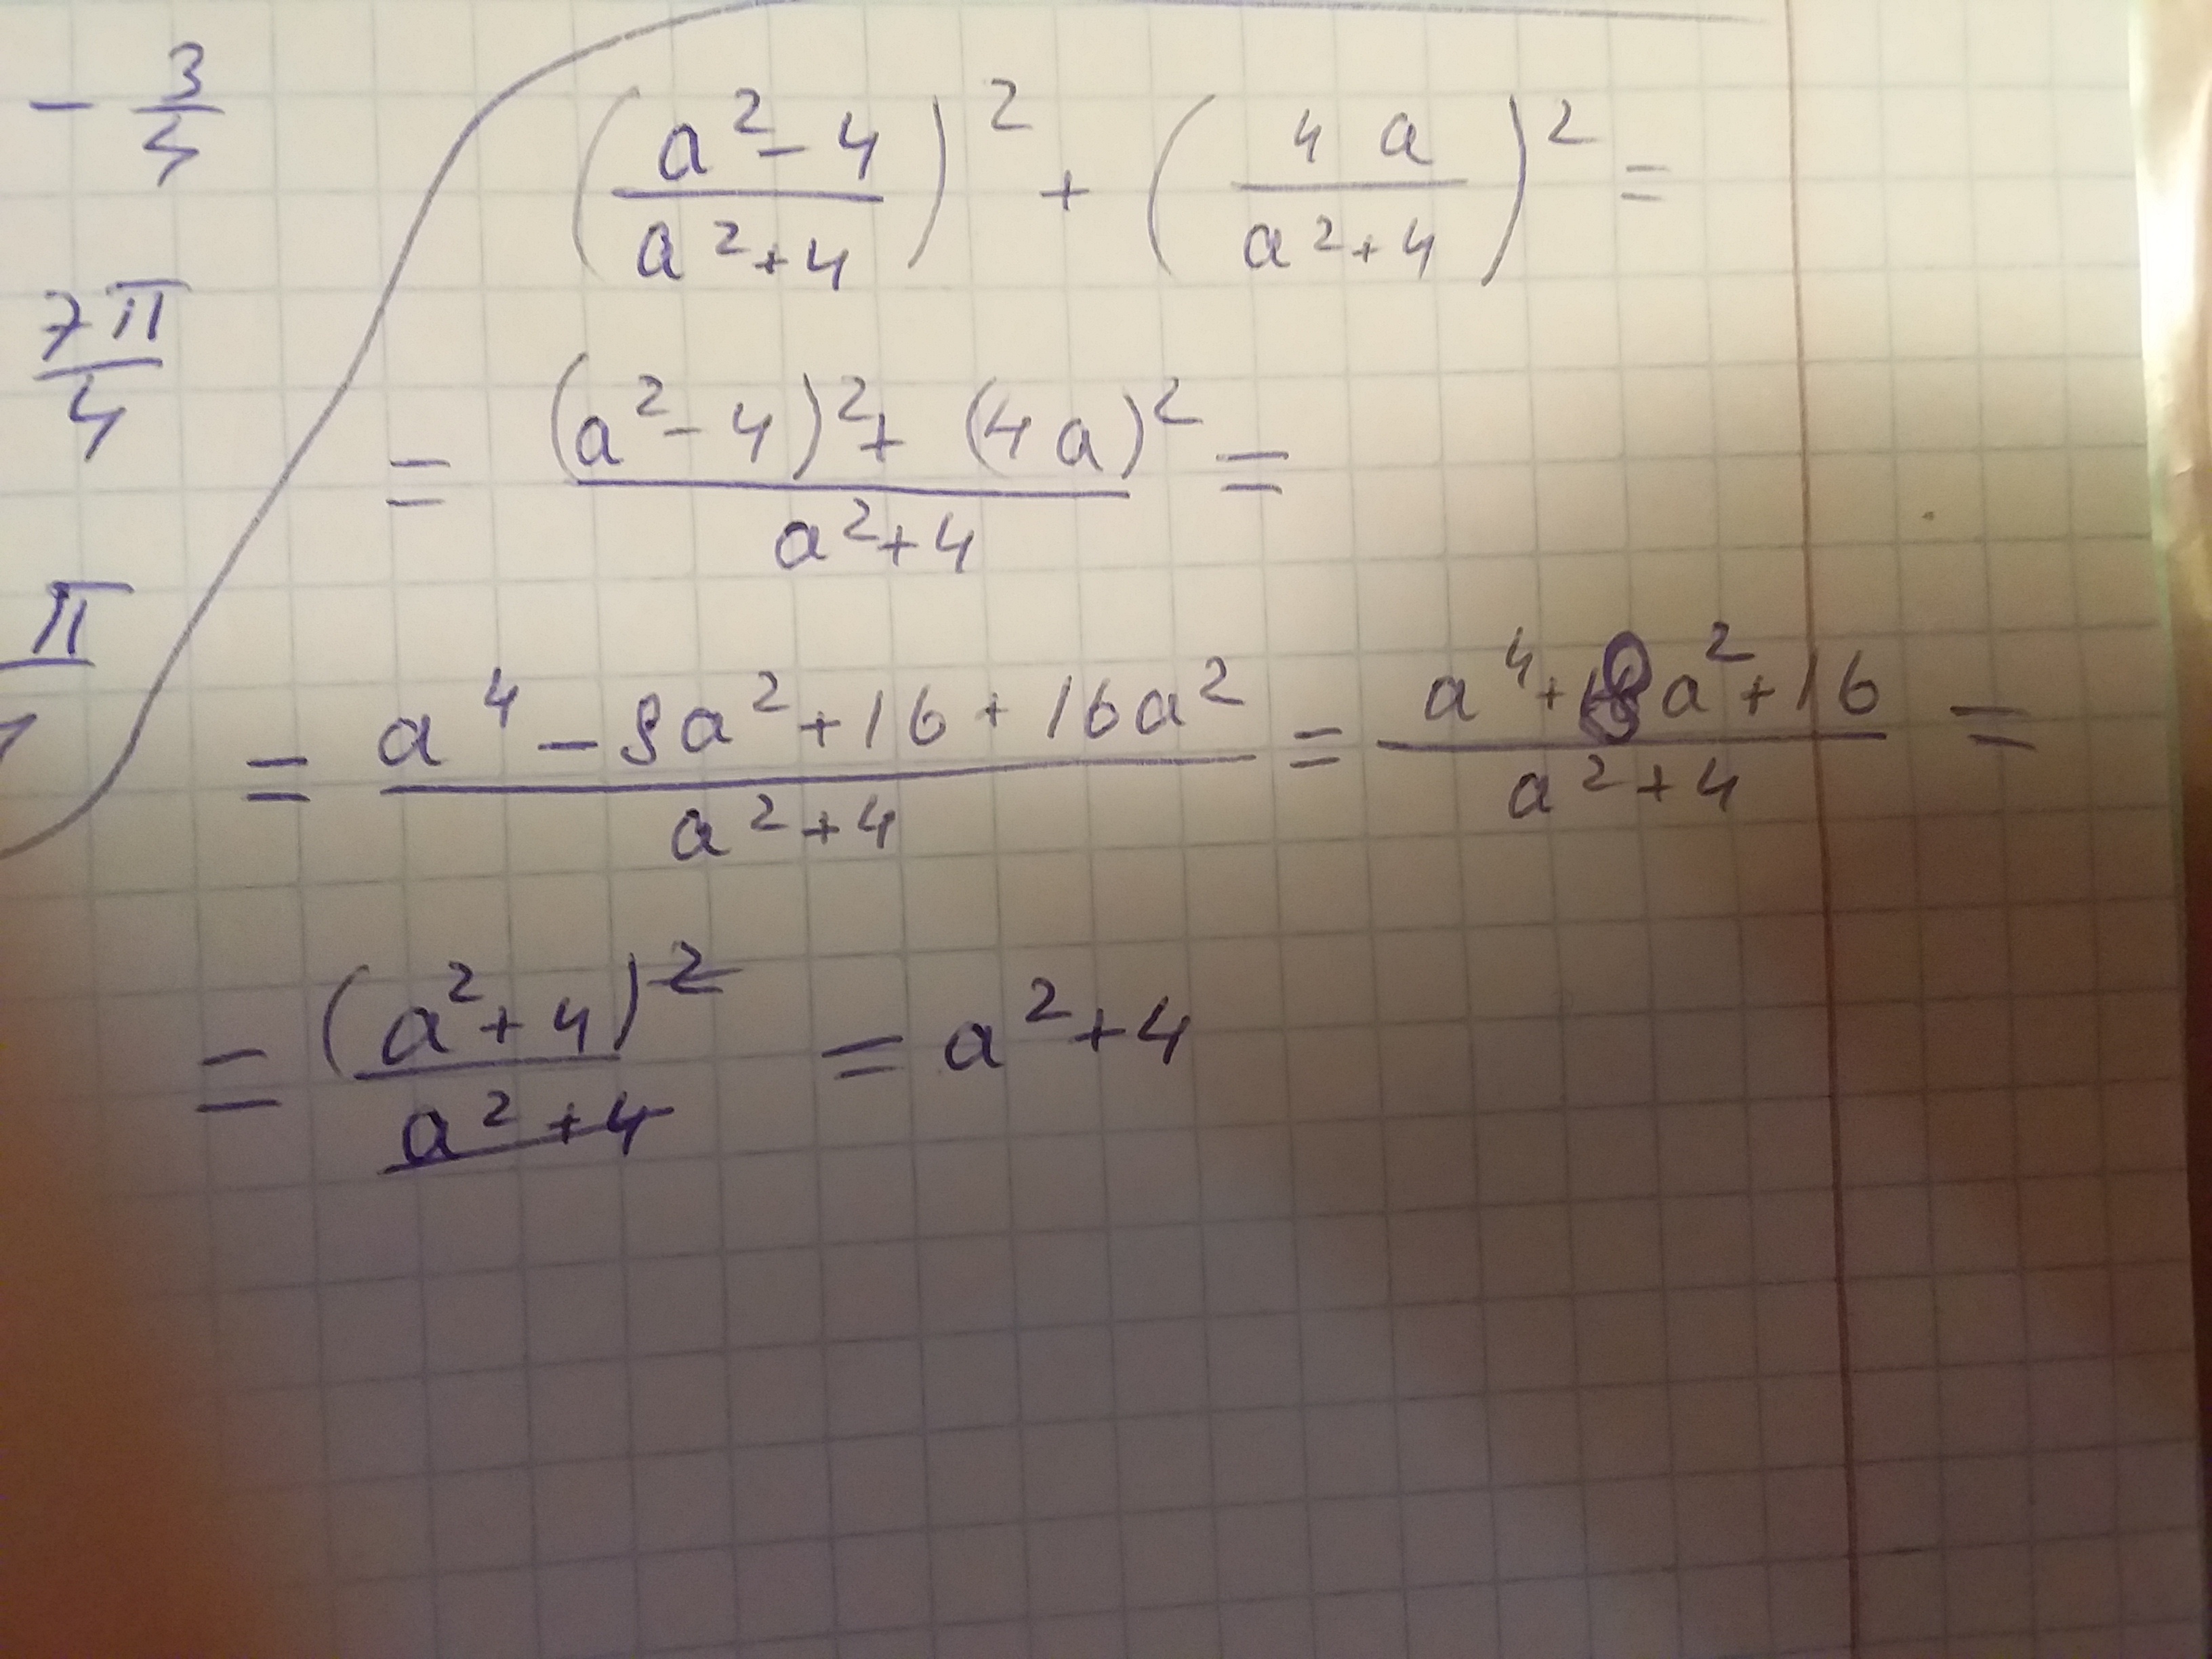 - 3/4
(a² - 4 / a² + 4)² + (4a / a² + 4)² =
7π/4
= (a² - 4)² + (4a)² / a² + 4 =
π
= a⁴ - 8a² + 16 + 16a² / a² + 4 = a⁴ + 8a² + 16 / a² + 4 =
= (a² + 4)² / a² + 4 = a² + 4